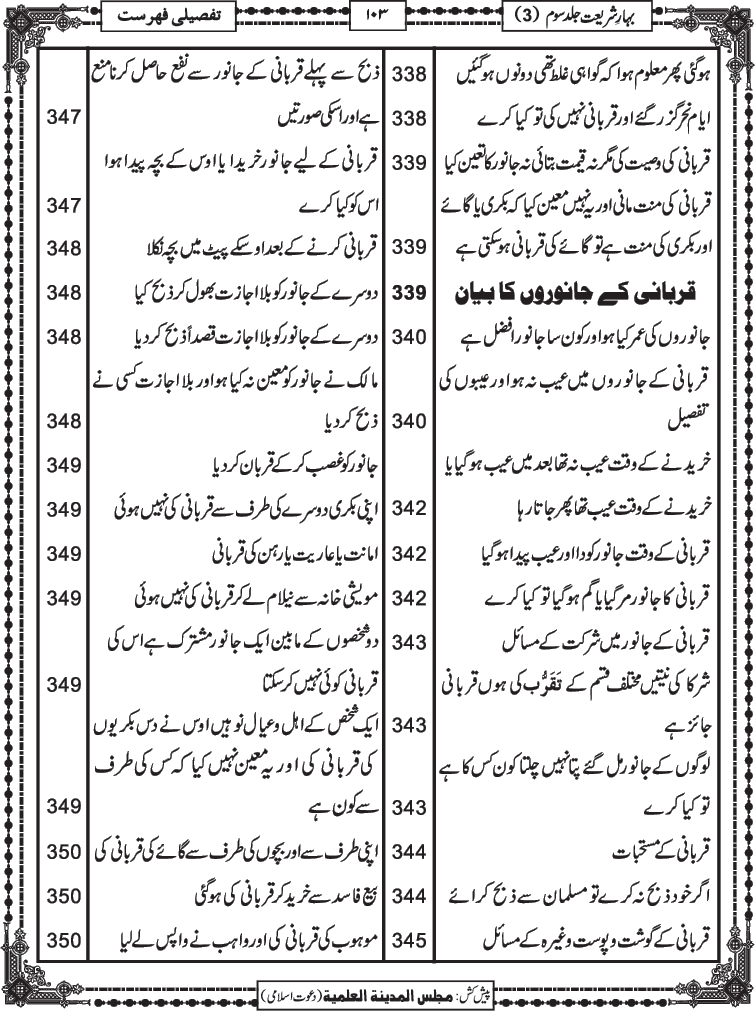 بہارِ شریعت جلد سوم (3)
۱۰۳
تفصیلی فہرست
ہوگئی پھر معلوم ہوا کہ گواہی غلط تھی دونوں ہوگئیں 338
ایام نحر گزر گئے اور قربانی نہیں کی تو کیا کرے 338
قربانی کی وصیت کی مگر نہ قیمت بتائی نہ جانور کا تعین کیا 339
قربانی کی منت مانی اور یہ نہیں معین کیا کہ بکری یا گائے
اور بکری کی منت ہے تو گائے کی قربانی ہوسکتی ہے 339
قربانی کے جانوروں کا بیان 339
جانوروں کی عمر کیا ہو اور کون سا جانور افضل ہے 340
قربانی کے جانوروں میں عیب نہ ہو اور عیبوں کی
تفصیل 340
خریدنے کے وقت عیب نہ تھا بعد میں عیب ہوگیا یا
خریدنے کے وقت عیب تھا پھر جاتا رہا 342
قربانی کے وقت جانور کودا اور عیب پیدا ہوگیا 342
قربانی کا جانور مرگیا یا گم ہوگیا تو کیا کرے 342
قربانی کے جانور میں شرکت کے مسائل 343
شرکا کی نیتیں مختلف قسم کے تَقَرُّب کی ہوں قربانی
جائز ہے 343
لوگوں کے جانور مل گئے پتا نہیں چلتا کون کس کا ہے
تو کیا کرے 343
قربانی کے مستحبات 344
اگر خود ذبح نہ کرے تو مسلمان سے ذبح کرائے 344
قربانی کے گوشت و پوست وغیرہ کے مسائل 345
ذبح سے پہلے قربانی کے جانور سے نفع حاصل کرنا منع
ہے اور اسکی صورتیں 347
قربانی کے لیے جانور خریدا یا اوس کے بچہ پیدا ہوا
اس کو کیا کرے 347
قربانی کرنے کے بعد اوسکے پیٹ میں بچہ نکلا 348
دوسرے کے جانور کو بلا اجازت بھول کر ذبح کیا 348
دوسرے کے جانور کو بلا اجازت قصداً ذبح کردیا 348
مالک نے جانور کو معین نہ کیا ہو اور بلا اجازت کسی نے
ذبح کردیا 348
جانور کو غصب کرکے قربان کردیا 349
اپنی بکری دوسرے کی طرف سے قربانی کی نہیں ہوئی 349
امانت یا عاریت یا رہن کی قربانی 349
مویشی خانہ سے نیلام لے کر قربانی کی نہیں ہوئی 349
دو شخصوں کے مابین ایک جانور مشترک ہے اس کی
قربانی کوئی نہیں کرسکتا 349
ایک شخص کے اہل و عیال نو ہیں اوس نے دس بکریوں
کی قربانی کی اور یہ معین نہیں کیا کہ کس کی طرف
سے کون ہے 349
اپنی طرف سے اور بچوں کی طرف سے گائے کی قربانی کی 350
بیع فاسد سے خرید کر قربانی کی ہوگئی 350
موہوب کی قربانی کی اور واہب نے واپس لے لیا 350
پیش کش: مجلس المدینۃ العلمیۃ (دعوت اسلامی)